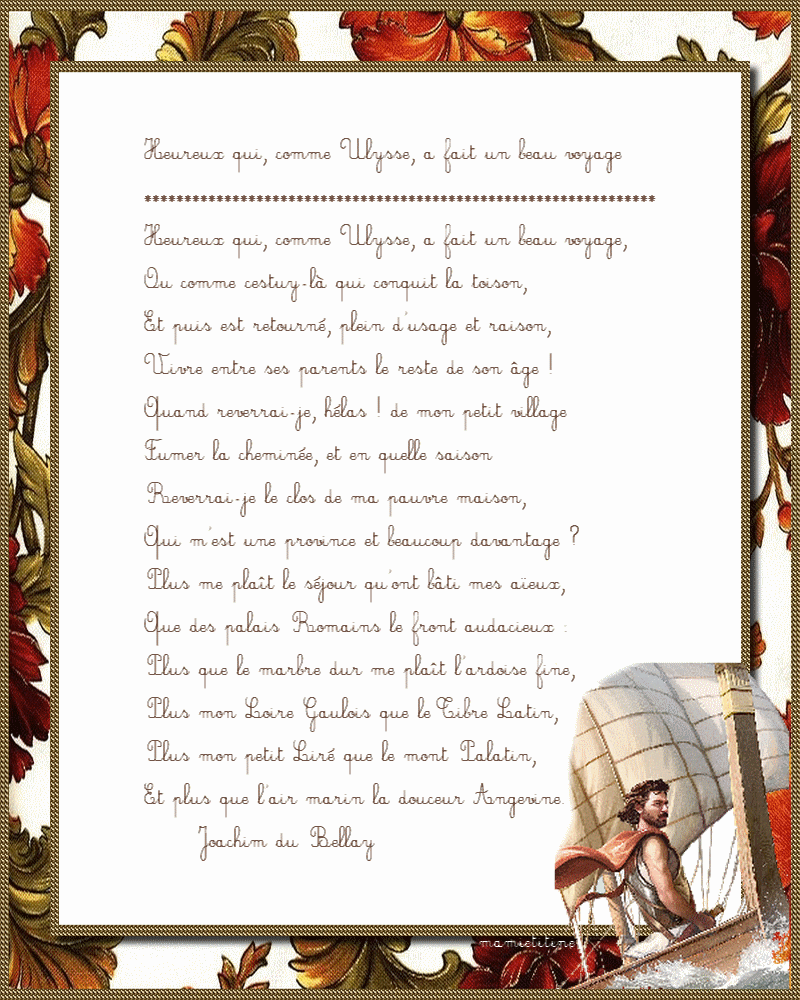 Heureux qui, comme Ulysse, a fait un beau voyage
****************************************************************
Heureux qui, comme Ulysse, a fait un beau voyage,
Ou comme cestuy-là qui conquit la toison,
Et puis est retourné, plein d'usage et raison,
Vivre entre ses parents le reste de son âge !
Quand reverrai-je, hélas ! de mon petit village
Fumer la cheminée, et en quelle saison
Reverrai-je le clos de ma pauvre maison,
Qui m'est une province et beaucoup davantage ?
Plus me plaît le séjour qu'ont bâti mes aïeux,
Que des palais Romains le front audacieux :
Plus que le marbre dur me plaît l'ardoise fine,
Plus mon Loire Gaulois que le Tibre Latin,
Plus mon petit Liré que le mont Palatin,
Et plus que l'air marin la douceur Angevine.
Joachim du Bellay
mamietitine